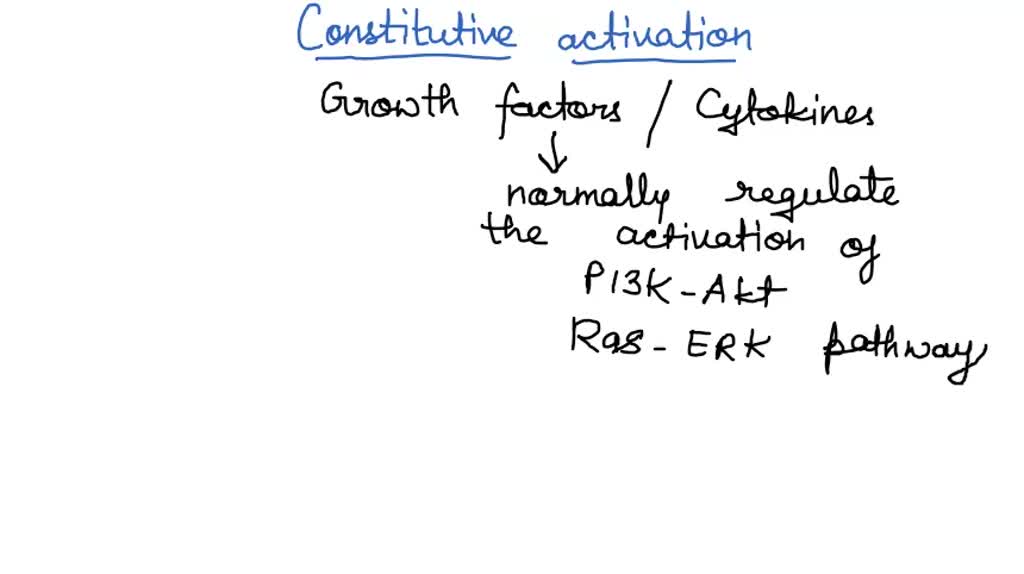 Constitutive activation
Growth factors / Cytokines
↓
normally regulate
the activation of
PI3K - Akt
Ras - ERK pathway